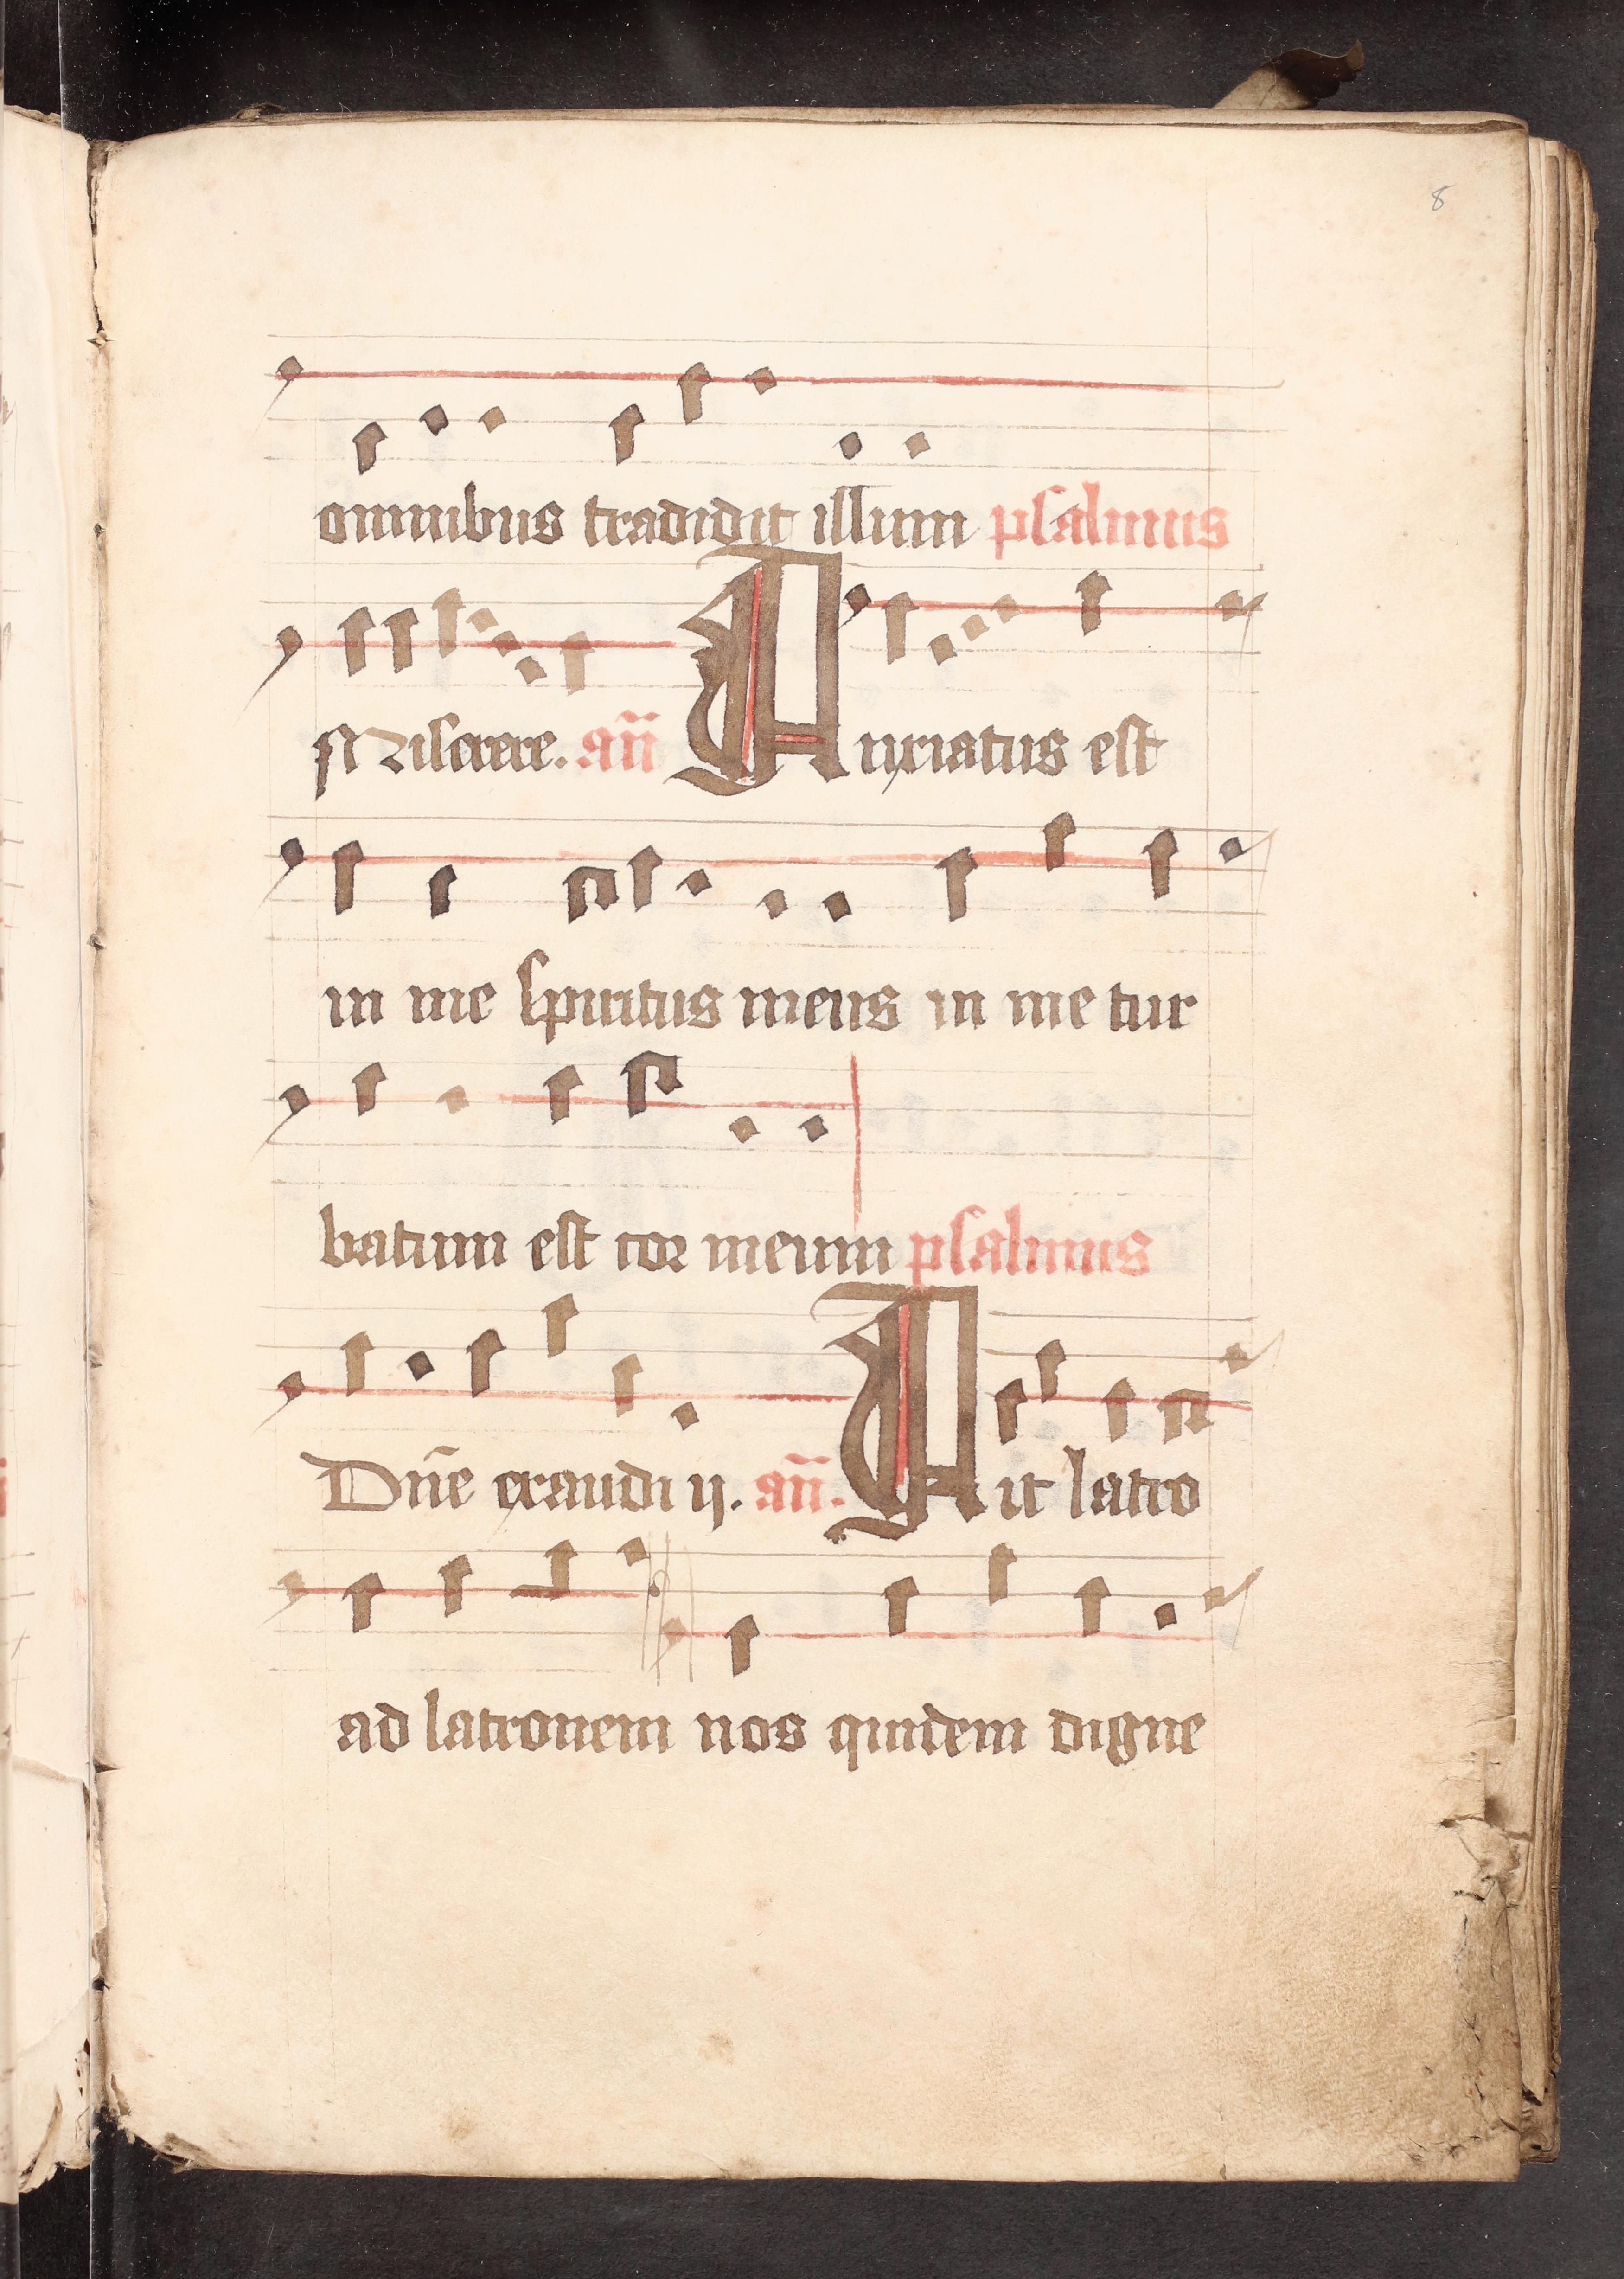 8
omnibus tradidit illum psalmus
Miserere. an̄ Anxiatus est
in me spiritus meus in me tur
batum est cor meum psalmus
Dn̄e exaudi ij. an̄. Ait latro
ad latronem nos quidem digne